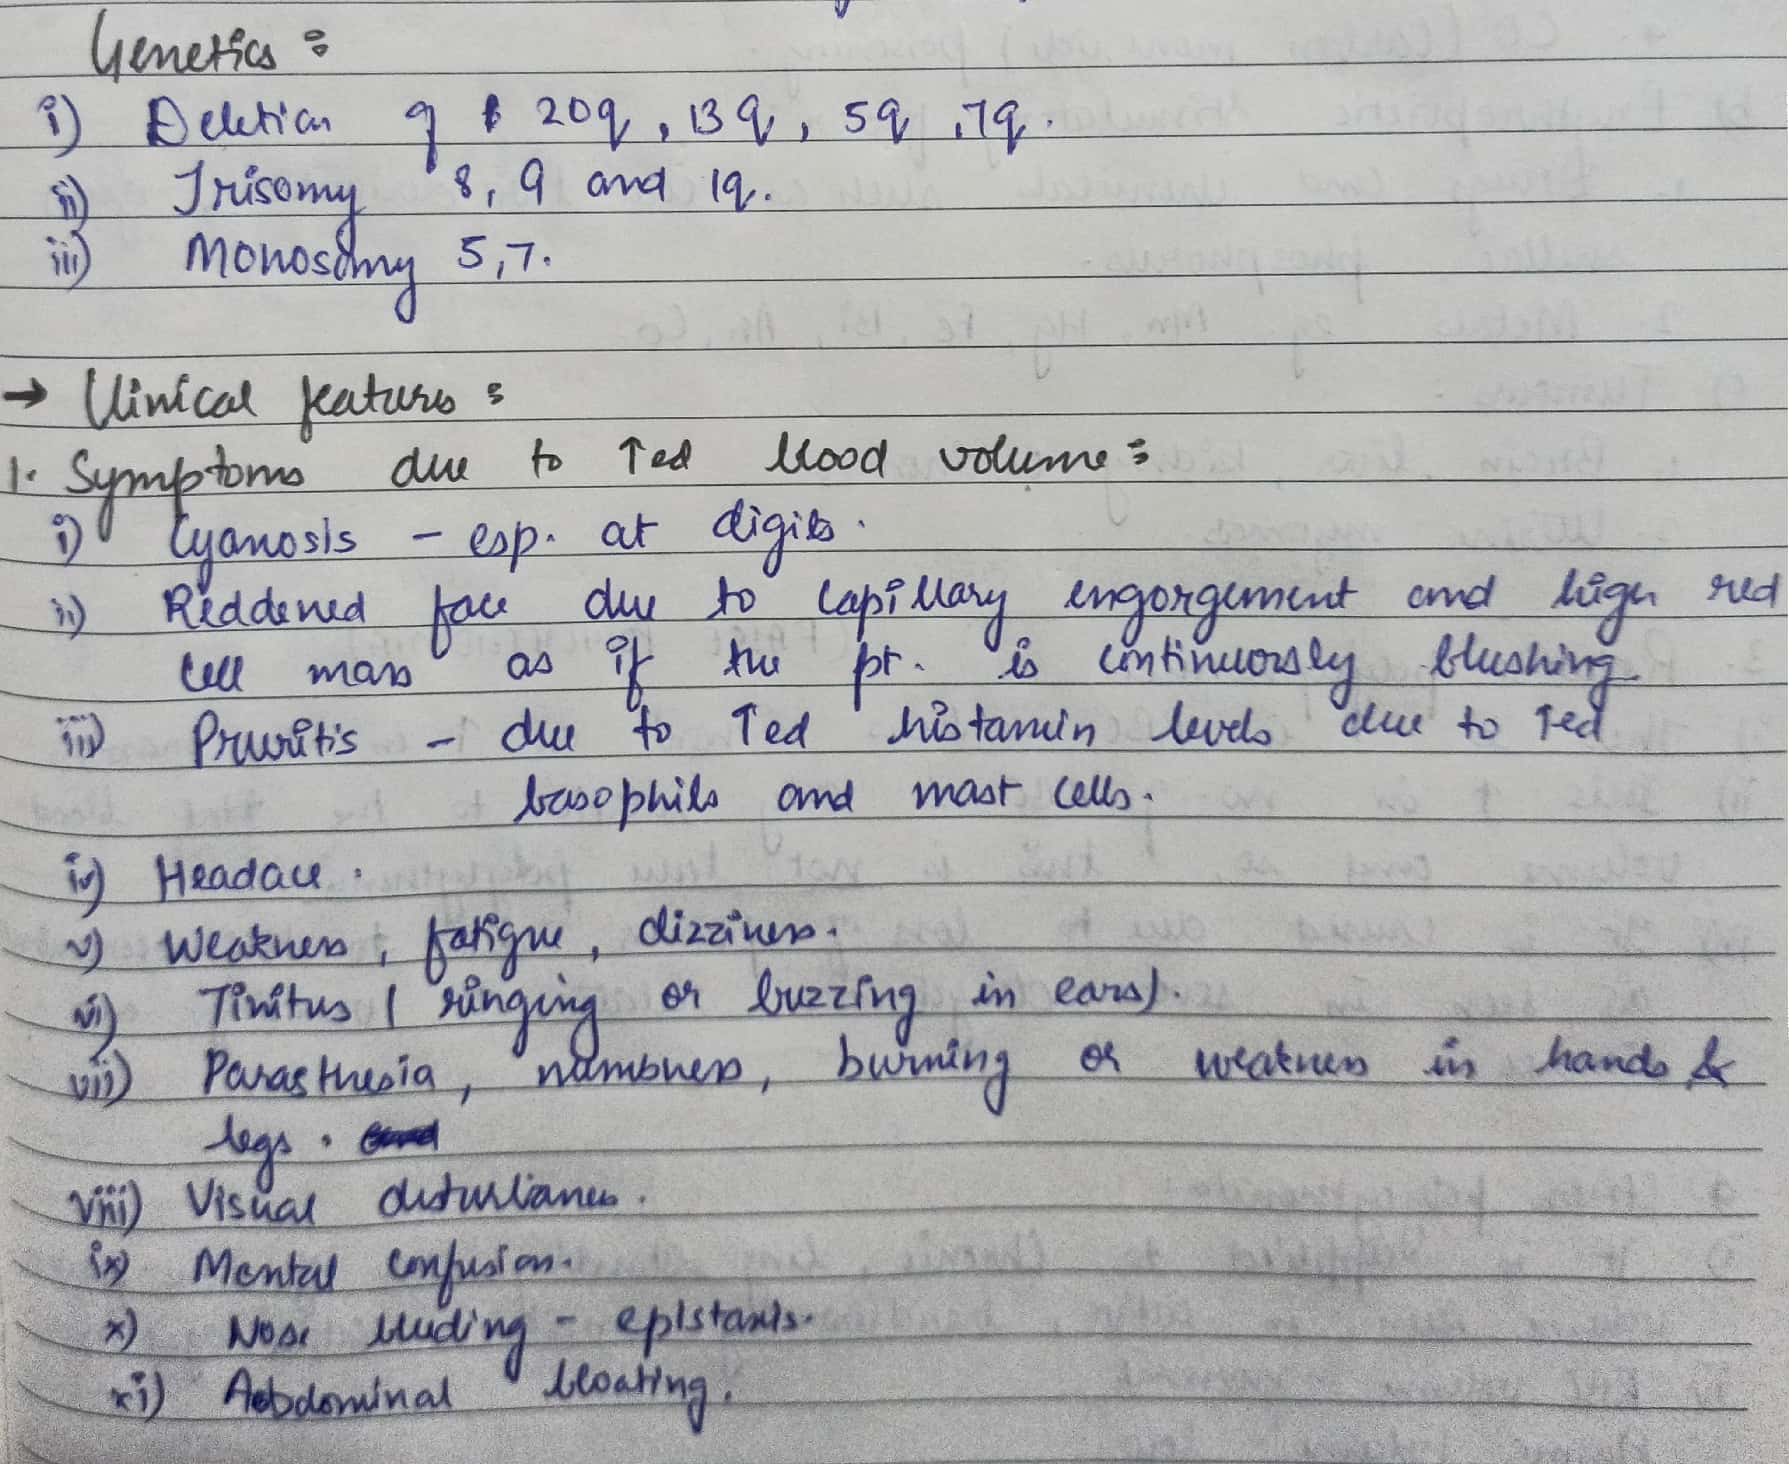 Genetics :
i) Deletion of 20q, 13q, 5q, 7q.
ii) Trisomy 8, 9 and 1q.
iii) Monosomy 5, 7.
→ Clinical features :
1. Symptoms due to ↑ed blood volume :
i) Cyanosis - esp. at digits.
ii) Reddened face due to capillary engorgement and high red
cell mass as if the pt. is continuously blushing
iii) Pruritis - due to ↑ed histamin levels due to ↑ed
basophils and mast cells.
iv) Headace.
v) Weakness, fatigue, dizziness.
vi) Tinitus ( ringing or buzzing in ears).
vii) Parasthesia, numbness, burning or weakness in hands &
legs.
viii) Visual disturbances.
ix) Mental confusion.
x) Nose bleeding - epistaxis.
xi) Abdominal bloating.